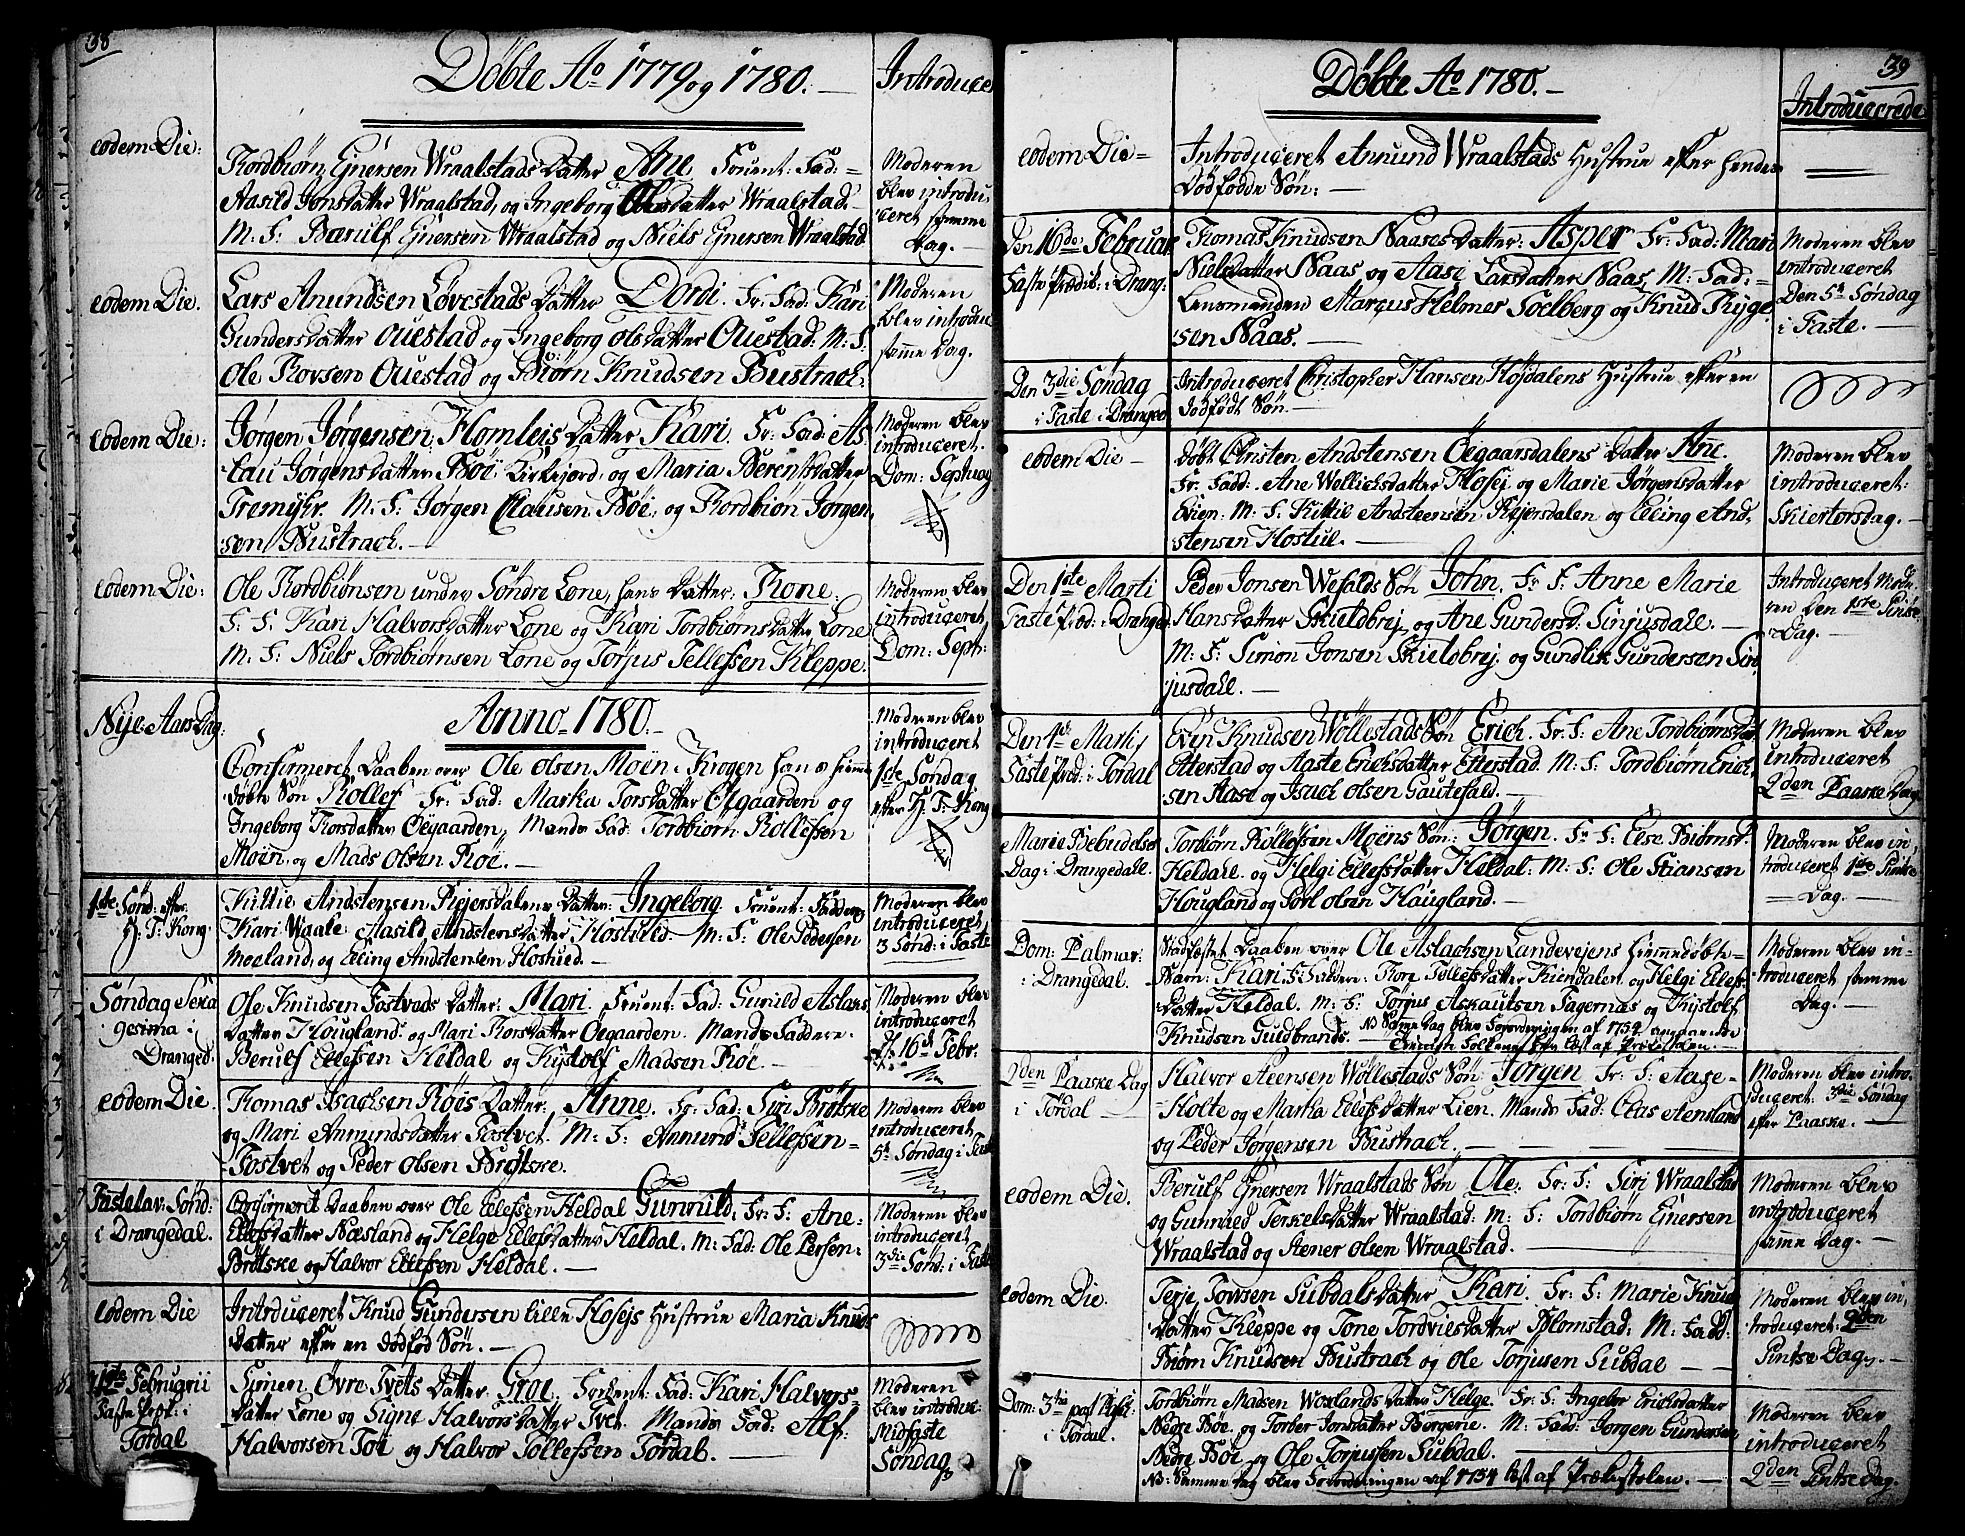 38
Döbte Ao 1779 og 1780.
Introduce
eodem Die:
Tordbiørn Ejnersen Wraalstads Datter Ane Fruent: Fad:
Aasild Jonsdatter Wraalstad, og Ingeborg Olsdatter Wraalstad.
M: F: Berulf Ejnersen Wraalstad og Niels Ejnersen Wraalstad
Moderen
blev introdu
ceret samme
Dag.
eodem Die.
Lars Anundsen Lövestads Datter Dordi. Fr: Fad: Kari
Gundersdatter Ouestad og Ingeborg Olsdatter Ouestad: M: F:
Ole Rovsen Ouestad og Biørn Knudsen Bustrach.
Moderen
blev introdu
samme Dag.
eodem Die:
Jørgen Jørgensen Homleis Datter Kari. Fr: Fad: As
lau Jørgensdatter Böe Kirkejord, og Maria Berentsdatter
Tremyhr. M: F: Jørgen Clausen Böe, og Tordbiørn Jørgen
sen Bustrach.
Moderen blev
introduceret.
Dom: Septuag
eodem Die:
Ole Tordbiørnsen under Søndre Lone, hans Datter: Tone.
F: F: Kari Halvorsdatter Lone og Kari Tordbiørnsdatter Lone
M: F: Niels Tordbiørnsen Lone og Torjus Tellefsen Kleppe.
Moderen blev
introduceret,
Dom: Sept:
Nije-Aars Dag:
Anno 1780.
Confirmeret Daaben over Ole Olsen Moen i Krogen hans hiemme
døbte Søn Rollef Fr: Fad: Marka Torsdatter Öegaarden og
Ingeborg Torsdatter Öegaarden, Mands Fad: Tordbiørn Rollefsen
Moen, og Mads Olsen Röe.
Moderen blev
introduceret
1ste Søndag
efter H: 3: Kong
1ste Sønd: efter
H: 3: Kong
Kittie Andstensen Rejersdalens Datter: Ingeborg Fruent: Faddere
Kari Waale Aasild Andstensdatter Hostved. M: F: Ole Pedersen
Moeland, og Elling Andstensen Hostved.
Moderen blev
introduceret
3 Sønd: i Faste
Søndag Sexa
gesima i
Dranged.
Ole Knudsen Fostveds Datter: Mari. Fruent: Fad: Gunild Aslaks
datter Hougland og Mari Torsdatter Öegaarden. Mands Faddere.
Berulf Ellefsen Heldal og Kistolf Madsen Röe.
Moderen blev
introduceret
16de Febr:
eodem Die.
Thomas Isachsen Röös Datter: Anne. Fr: Fad: Siri Brötske
og Mari Anmundsdatter Fostvet. M: F: Anmund Tellefsen
Fostvet og Peder Olsen Brötske.
Moderen blev
introduceret
5te Søndag i Faste
Fastelav: Sønd:
i Drangedal.
Confirmeret Daaben over Ole Ellefsen Heldal Gunnild. Fr: F: Ane
Ellefsdatter Næsland og Helge Ellefsdatter Heldal. M: Fad: Ole Persen
Brötske og Halvor Ellefsen Heldal.
Moderen blev
introduceret
3die Sønd: i Faste
eodem Die
Introduceret Knud Gundersen Lille Hosejs Hustrue Maria Knuds
datter efter en dødfød Søn.
1ste Februarii
Faste Præk: i
Tördal
Simen Övre Tvets Datter: Groe. Fruent: Fad: Kari Halvors
datter Lone og Signe Halvorsdatter Tvet. Mands Fad: Alf
Halvorsen Toe og Halvor Tollefsen Tørdal.
Moderen
blev introduc:
Midfaste
Søndag
39
Döbte Ao 1780.
Introducerede
eodem Die
Introduceret Annund Wraalstads Hustrue efter hendes
Dødfødde Søn:
Den 16de Februar
Faste Prædik: i Drang:
Thomas Knudsen Naases Datter: Asper Fr: Fad: Mari
Nielsdatter Naas og Aase Larsdatter Naas, M: Fad:
Lensmanden Marcus Helmes Soelberg og Knud Ryge
sen Naas.
Moderen blev
introduceret
Den 5te Søndag
i Faste.
Den 3die Søndag
i Faste i Dranged
Introduceret Christopher Hansen Höjdalens Hustrue efter en
dødfødt Søn.
eodem Die
Døbt Christen Andstensen Öegaardsdalens Datter Ane.
Fr: Fadd: Ane Wellichsdatter Hosej og Marie Jørgensdatter
Eien: M: F: Kittie Andsteensen Rejersdalen og Elling And
stensen Hostvet.
Moderen blev
introduceret:
Skiertorsdag.
Den 1ste Marti
Faste Præd: i Dranged
Peder Jonsen Wefalds Søn John. Fr: F: Anne Marie
Hansdatter Skieldbrej og Ane Gundersd: Sinjusdahl.
M: F: Simon Jonsen Skieldbrej og Gundlik Gundersen Sin
jusdahl.
Introduceret Mode
ren Den 1ste Pintse
Dag.
Den 4de Martij
Faste Præd: i Tørdal
Even Knudsen Wöllestads Søn Erich. Fr: F: Ane Tordbiørnsdatt
Etterstad og Aaste Erichsdatter Etterstad. M: F: Tordbiørn Erich
sen Aase og Isach Olsen Gautefald.
Moderen blev
introduceret
2den Paaske Dag
Marie Bebudelse
Dag i Drangedall.
Torbiørn Rollefsen Moens Søn: Jørgen. Fr: F: Else Biørnsd:
Heldahl og Helgi Ellefsdatter Heldal: M: F: Ole Stiansen
Hougland og Povl Olsen Haugland.
Moderen blev in
troduceret 1ste Pintse
Dag.
Dom: Palmar:
i Drangedal.
Stadfæstet Daaben over Ole Aslachsen Landevejens hiemmedøbte
Barn: Kari. Fr: Faddere: Thore Tollefsdatter Kiendalen og Helgi Ellefs
datter Heldal. M: F: Torjus Askautsen Sagernæs og Kistolf
Knudsen Guldbrands. NB Samme Dag blev Forordningen af 1754 angaaende
Moderen blev in
troduceret samme
Dag.
2den Paaske Dag
i Tördal
Halvor Aeensen Wöllestads Søn Jørgen Fr: F: Aase
Holte og Marka Ellefsdatter Lien. Mands Fad: Claus Aenstad
og Peder Jørgensen Bustrach.
Moderen blev intro
duceret: 3die Søndag
efter Paaske.
eodem Die.
Berulf Ejnersen Wraalstads Søn Ole. Fr: F: Siri Wraalstad
og Gunnild Terkelsdatter Wraalstad: M: F: Tordbiørn Ejnersen
Wraalstad og Stener Olsen Wraalstad.
Moderen blev
introduceret
samme Dag.
eodem Die.
Terje Tovsen Subdals Datter Kari. Fr: F: Marie Knuds
datter Kleppe og Tone Tordvilsdatter Blomstad: M: Fadd:
Biørn Knudsen Bustrach og Ole Torjusen Subdal
Moderen blev in
troduceret: 2den
Pintse Dag.
Dom: 3tia post Pasch:
i Tørdal.
Tordbiørn Madsen Woxlands Datter Helge. Fr: F: Ingebor Erichsdatter
Nedre Böe, og Torber Jonsdatter Bergene. M: Fad: Jørgen Gundersen
Nedre Böe og Ole Torjussen Subdal.
NB: Samme Dag blev Forordningen af 1754 læst af Prækestolen.
Moderen blev
introduceret
2den Pintse Dag.